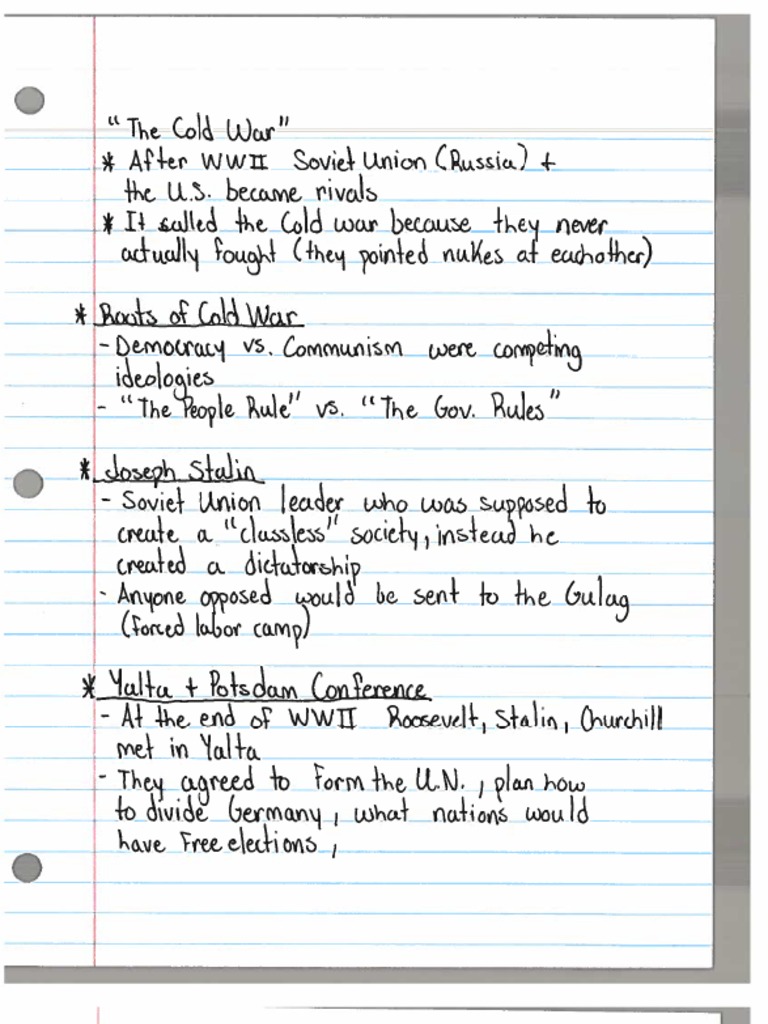 "The Cold War"
* After WWII Soviet Union (Russia) +
the U.S. became rivals
* It called the Cold war because they never
actually fought (they pointed nukes at eachother)
* Roots of Cold War
- Democracy vs. Communism were competing
ideologies
- "The People Rule" vs. "The Gov. Rules"
* Joseph Stalin
- Soviet Union leader who was supposed to
create a "classless" society, instead he
created a dictatorship
- Anyone opposed would be sent to the Gulag
(forced labor camp)
* Yalta + Potsdam Conference
- At the end of WWII Roosevelt, Stalin, Churchill
met in Yalta
- They agreed to Form the U.N. , plan how
to divide Germany, what nations would
have Free elections ,